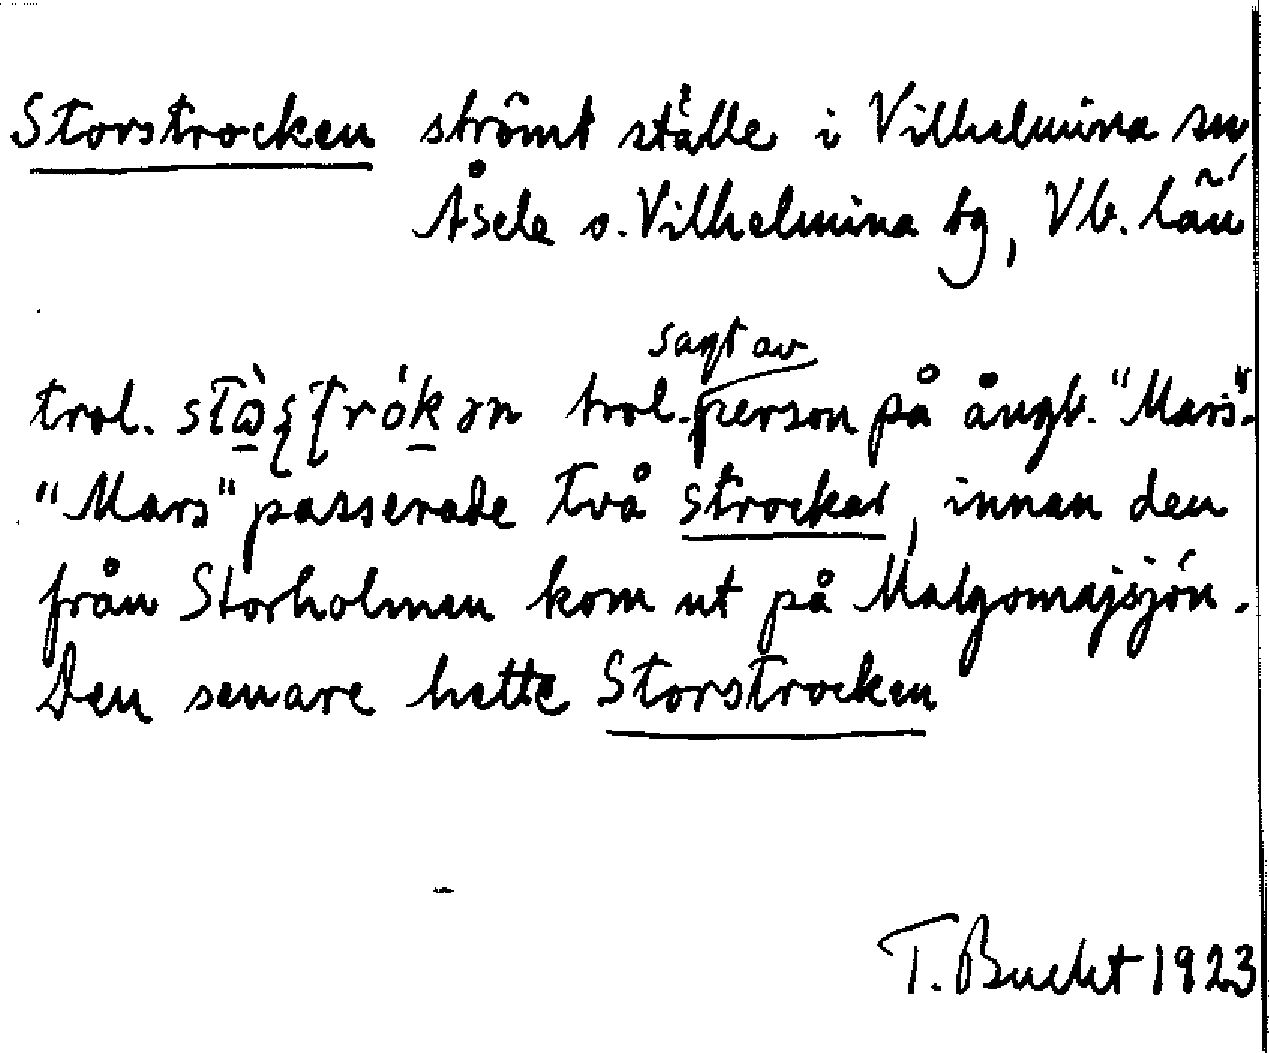 Storstrocken strömt ställe i Vilhelmina sn
Åsele o. Vilhelmina tg, Vb. län
sagt av
trol. trol. person på ångb. "Mars".
"Mars" passerade två strockar, innan den
från Storholmen kom ut på Malgomajsjön.
Den senare hette Storstrocken
T. Bucht 1923